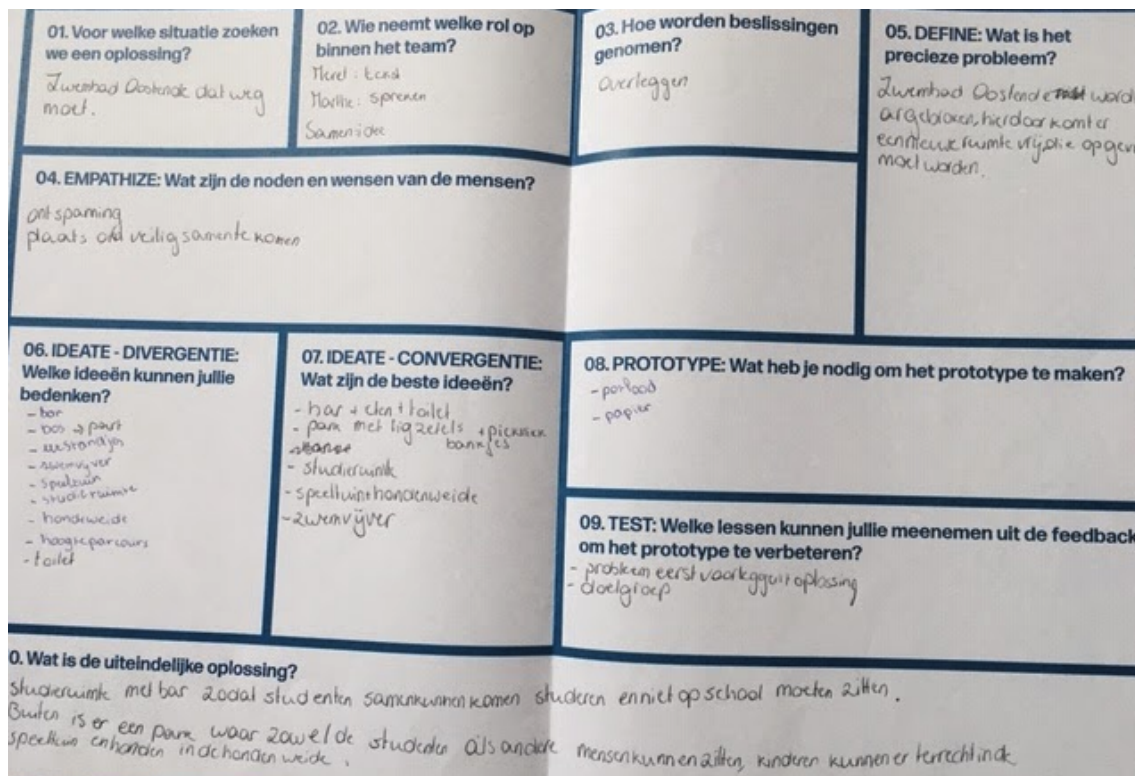 01. Voor welke situatie zoeken
we een oplossing?
Zwembad Oostende dat weg
moet.
02. Wie neemt welke rol op
binnen het team?
Merel: tekst
Marthe: spreken
Samen idee
03. Hoe worden beslissingen
genomen?
overleggen
05. DEFINE: Wat is het
precieze probleem?
Zwembad Oostende word
afgebroken, hierdoor komt er
een nieuwe ruimte vrij die
moet worden.
04. EMPATHIZE: Wat zijn de noden en wensen van de mensen?
ontspanning
plaats om veilig samen te komen
06. IDEATE - DIVERGENTIE:
Welke ideeën kunnen jullie
bedenken?
- bar
- bos → park
- eetstandjes
- zwemvijver
- speeltuin
- studieruimte
- hondeweide
- hoogteparcours
- toilet
07. IDEATE - CONVERGENTIE:
Wat zijn de beste ideeën?
- bar + eten + toilet
- park met ligzetels + picknick
bankjes
- studieruimte
- speeltuin + hondenweide
- zwemvijver
08. PROTOTYPE: Wat heb je nodig om het prototype te maken?
- potlood
- papier
09. TEST: Welke lessen kunnen jullie meenemen uit de feedback
om het prototype te verbeteren?
- probleem eerst oplossing
- doelgroep
0. Wat is de uiteindelijke oplossing?
Studieruimte met bar zodat studenten samen kunnen komen studeren en niet op school moeten zitten.
Buiten is er een park waar zowel de studenten als andere mensen kunnen zitten, kinderen kunnen er terrecht in de
speeltuin en honden in de honden weide.